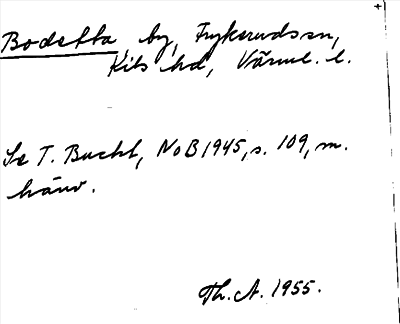 Bodetta, by, Frykerudssn,
Kils hd, Värml. l.
Se T. Bucht, NoB 1945, s. 109, m.
hänv.
Th. A. 1955.